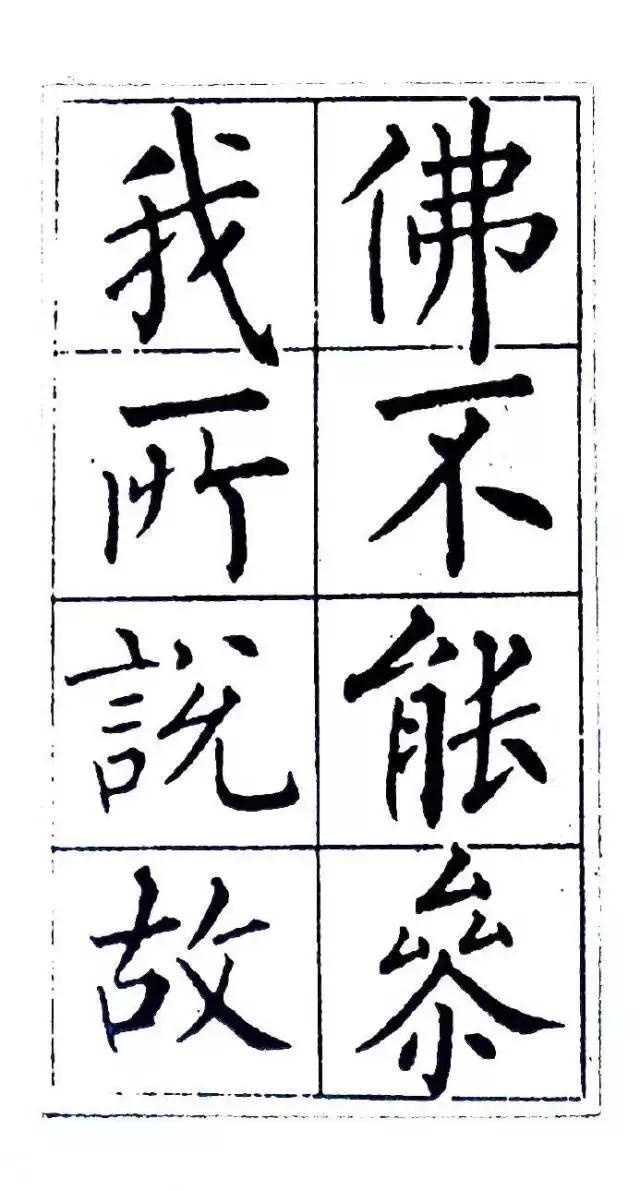 佛不能叅
我所說故